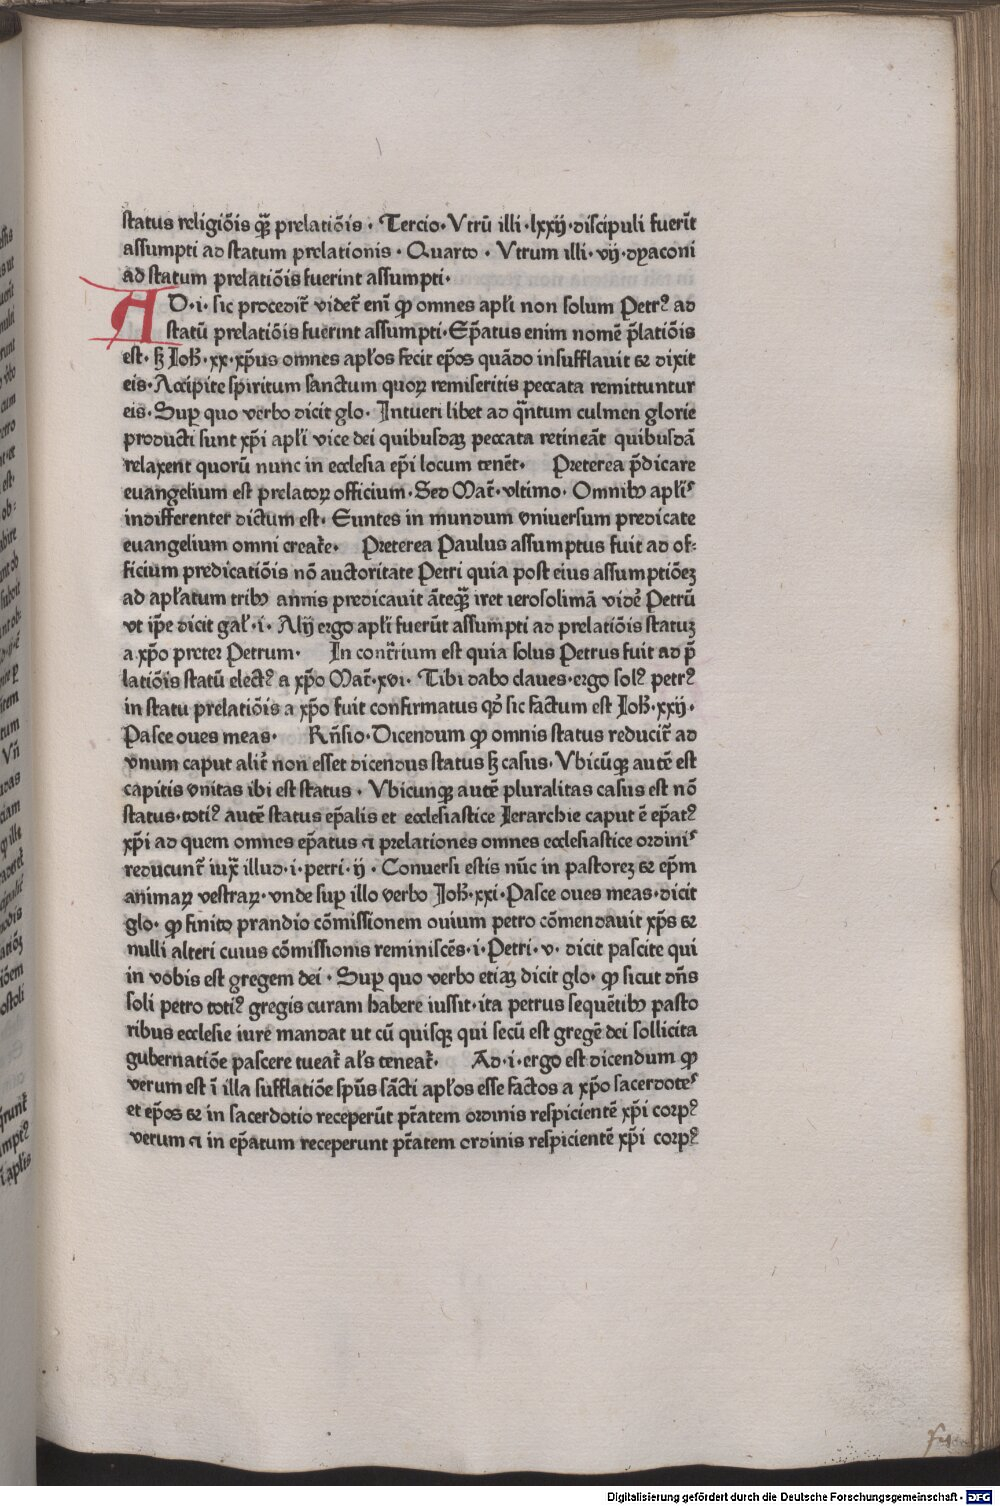 status religiōis qꝫ̄ prelatiōis · Tercio · Vtrū illi · lxxij · discipuli fuerīt
assumpti ad statum prelationis · Quarto · Vtrum illi · vij · dyaconi
ad statum prelatiōis fuerint assumpti ·
AD · i · sic procedit᷑ videt᷑ eni᷑ ꝙ omnes apłi non solum Petrꝰ ad
statū prelatiōis fuerint assumpti · Ep̄atus enim nomē p̄latiōis
est · sꝫ Joh̄ · xx · xp̄us omnes apłos fecit ep̄os quādo insufflauit ⁊ dixit
eis · Accipite spiritum sanctum quoꝝ remiseritis peccata remittuntur
eis · Suꝑ quo verbo dicit glo · Intueri libet ad q̄ntum culmen glorie
producti sunt xp̄i apłi vice dei quibusdaꝫ peccata retineāt quibusdā
relaxent quorū nunc in ecclesia ep̄i locum tenēt · Preterea p̄dicare
euangelium est prelatoꝝ officium · Sed Mat᷑ · vltimo · Omnibꝰ apłis
indifferenter dictum est · Euntes in mundum vniuersum predicate
euangelium omni creat᷑e · Preterea Paulus assumptus fuit ad of⸗
ficium predicatiōis nō auctoritate Petri quia post eius assumptiōeꝫ
ad apłatum tribꝰ annis predicauit āteqꝫ̄ iret ierosolimā vide᷑ Petrū
vt ip̄e dicit gał · i · Alij ergo apłi fuerūt assumpti ad prelatiōis statuꝫ
a xp̄o preter Petrum · In cont᷑rium est quia solus Petrus fuit ad p̄
latiōis statū electꝰ a xp̄o Mat᷑ · xvi · Tibi dabo claues · ergo solꝰ petrꝰ
in statu prelatiōis a xp̄o fuit confirmatus qd᷑ sic factum est Joh̄ · xxij ·
Pasce oues meas · Rn̄sio · Dicendum ꝙ omnis status reducit᷑ ad
vnum caput alit᷑ non esset dicendus status sꝫ casus · Vbicūqꝫ autē est
capitis vnitas ibi est status · Vbicunqꝫ autē pluralitas casus est nō
status · totiꝰ autē status ep̄alis et ecclesiastice Ierarchie caput ē ep̄atꝰ
xp̄i ad quem omnes ep̄atus ⁊ prelationes omnes ecclesiastice ordinis
reducunt᷑ iuxͣ illud · i · petri · ij · Conuersi estis nūc in pastoreꝫ ⁊ ep̄m
animaꝝ vestraꝝ · vnde suꝑ illo verbo Joh̄ · xxi · Pasce oues meas · dicit
glo · ꝙ finito prandio cōmissionem ouium petro cōmendauit xp̄s ⁊
nulli alteri cuius cōmissionis reminiscēs · i · Petri · v · dicit pascite qui
in vobis est gregem dei · Suꝑ quo verbo etiaꝫ dicit glo · ꝙ sicut dn̄s
soli petro totiꝰ gregis curam habere iussit · ita petrus sequētibꝰ pasto
ribus ecclesie iure mandat ut cū quisqꝫ qui secū est gregē dei sollicita
gubernatiōe pascere tueat᷑ ałs teneat᷑ · Ad · i · ergo est dicendum ꝙ
verum est ī illa sufflatiōe sp̄us sāncti apłos esse factos a xp̄o sacerdotes
et ep̄os ⁊ in sacerdotio receperūt pt̄atem ordinis respicientē xp̄i corpꝰ
verum ⁊ in ep̄atum receperunt pt̄atem ordinis respicientē xp̄i corpꝰ
Digitalisierung gefördert durch die Deutsche Forschungsgemeinschaft - DFG